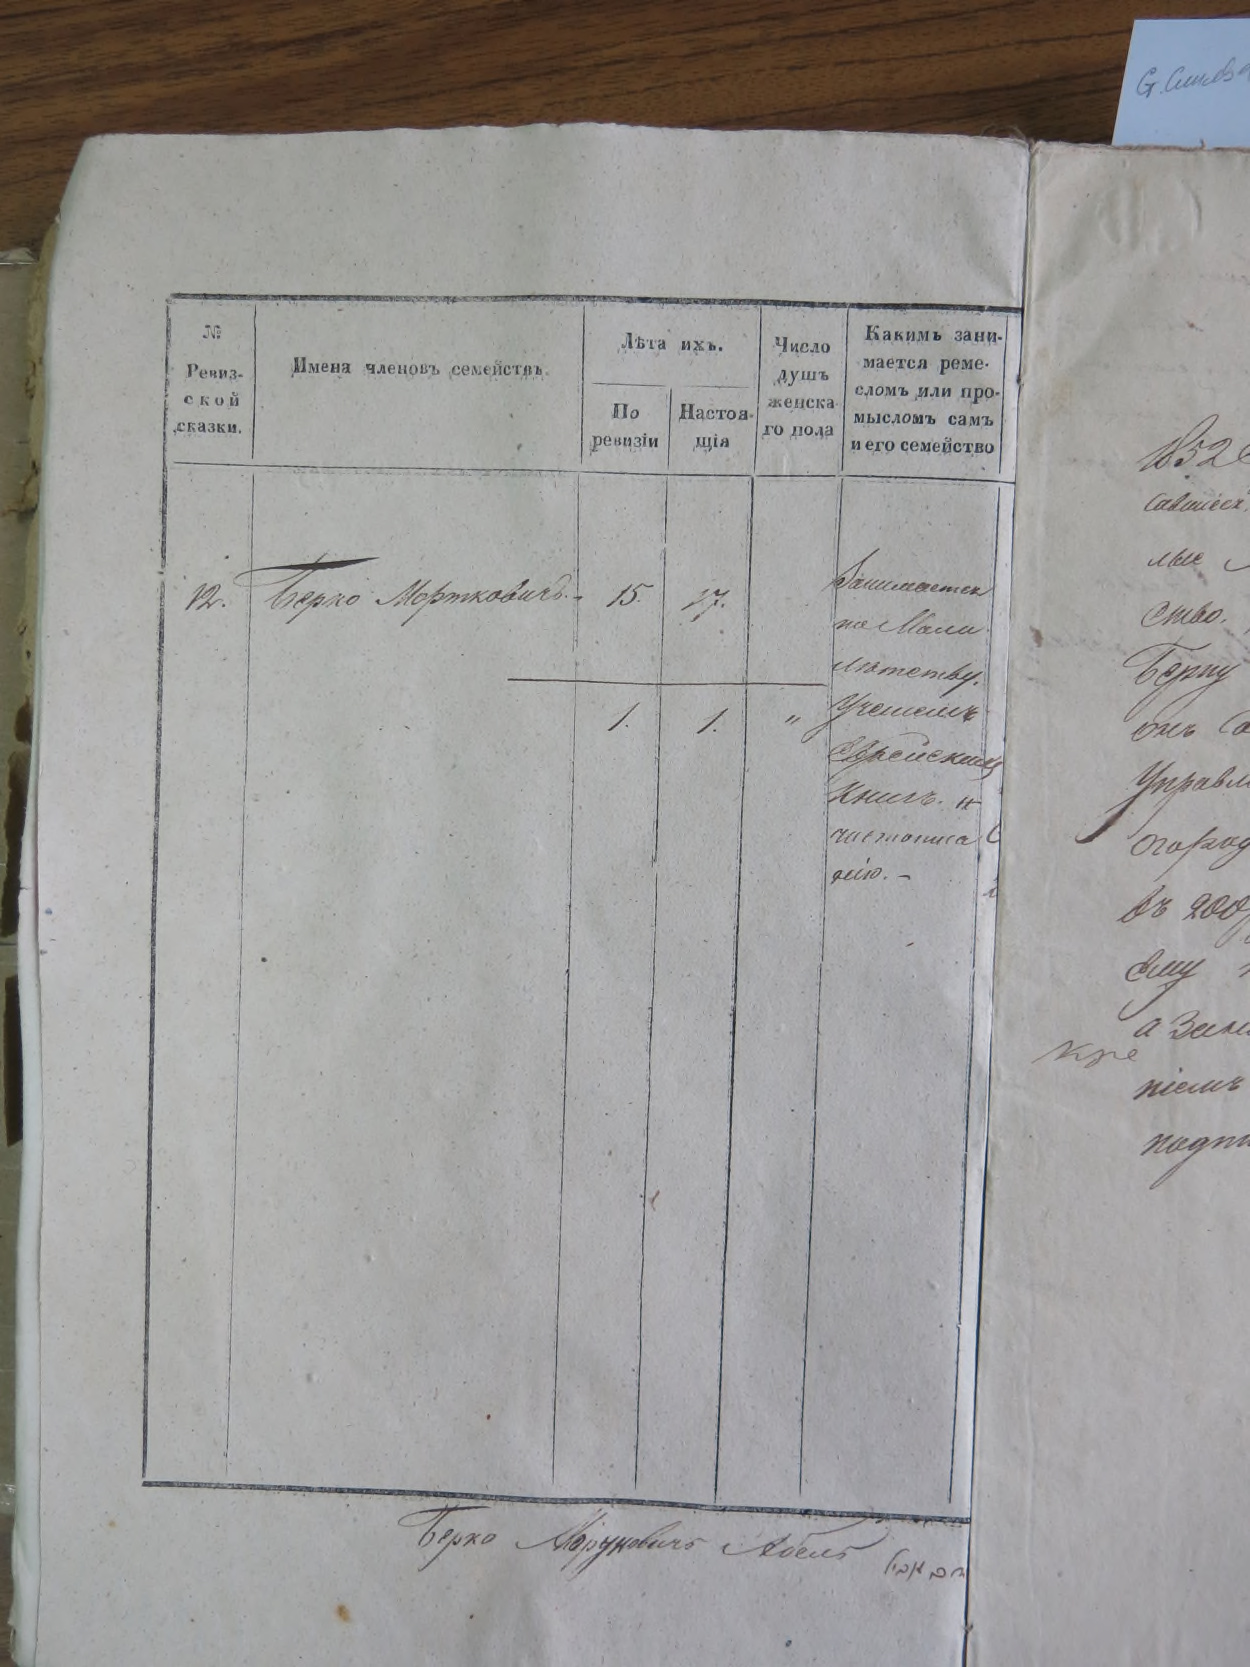 №
Ревиз-
ской
сказки.
Имена членовъ семействъ.
Лѣта ихъ.
По
ревизіи
Настоя-
щія
Число
душъ
женска-
го пола
Какимъ зани-
мается реме-
сломъ или про-
мысломъ самъ
и его семейство
12. Берко Мортковичъ. 15. 17.
Занимается
по Мало
лѣтству.
1. 1. "
Ученіемъ
Еврейскихъ
Книгъ. и
чистописа
нію. -
Берко Абель
1852
лые
ство.
Берку
онъ
Управл
огород
въ 200
ему
а Зани
кре
ніемъ
подпи